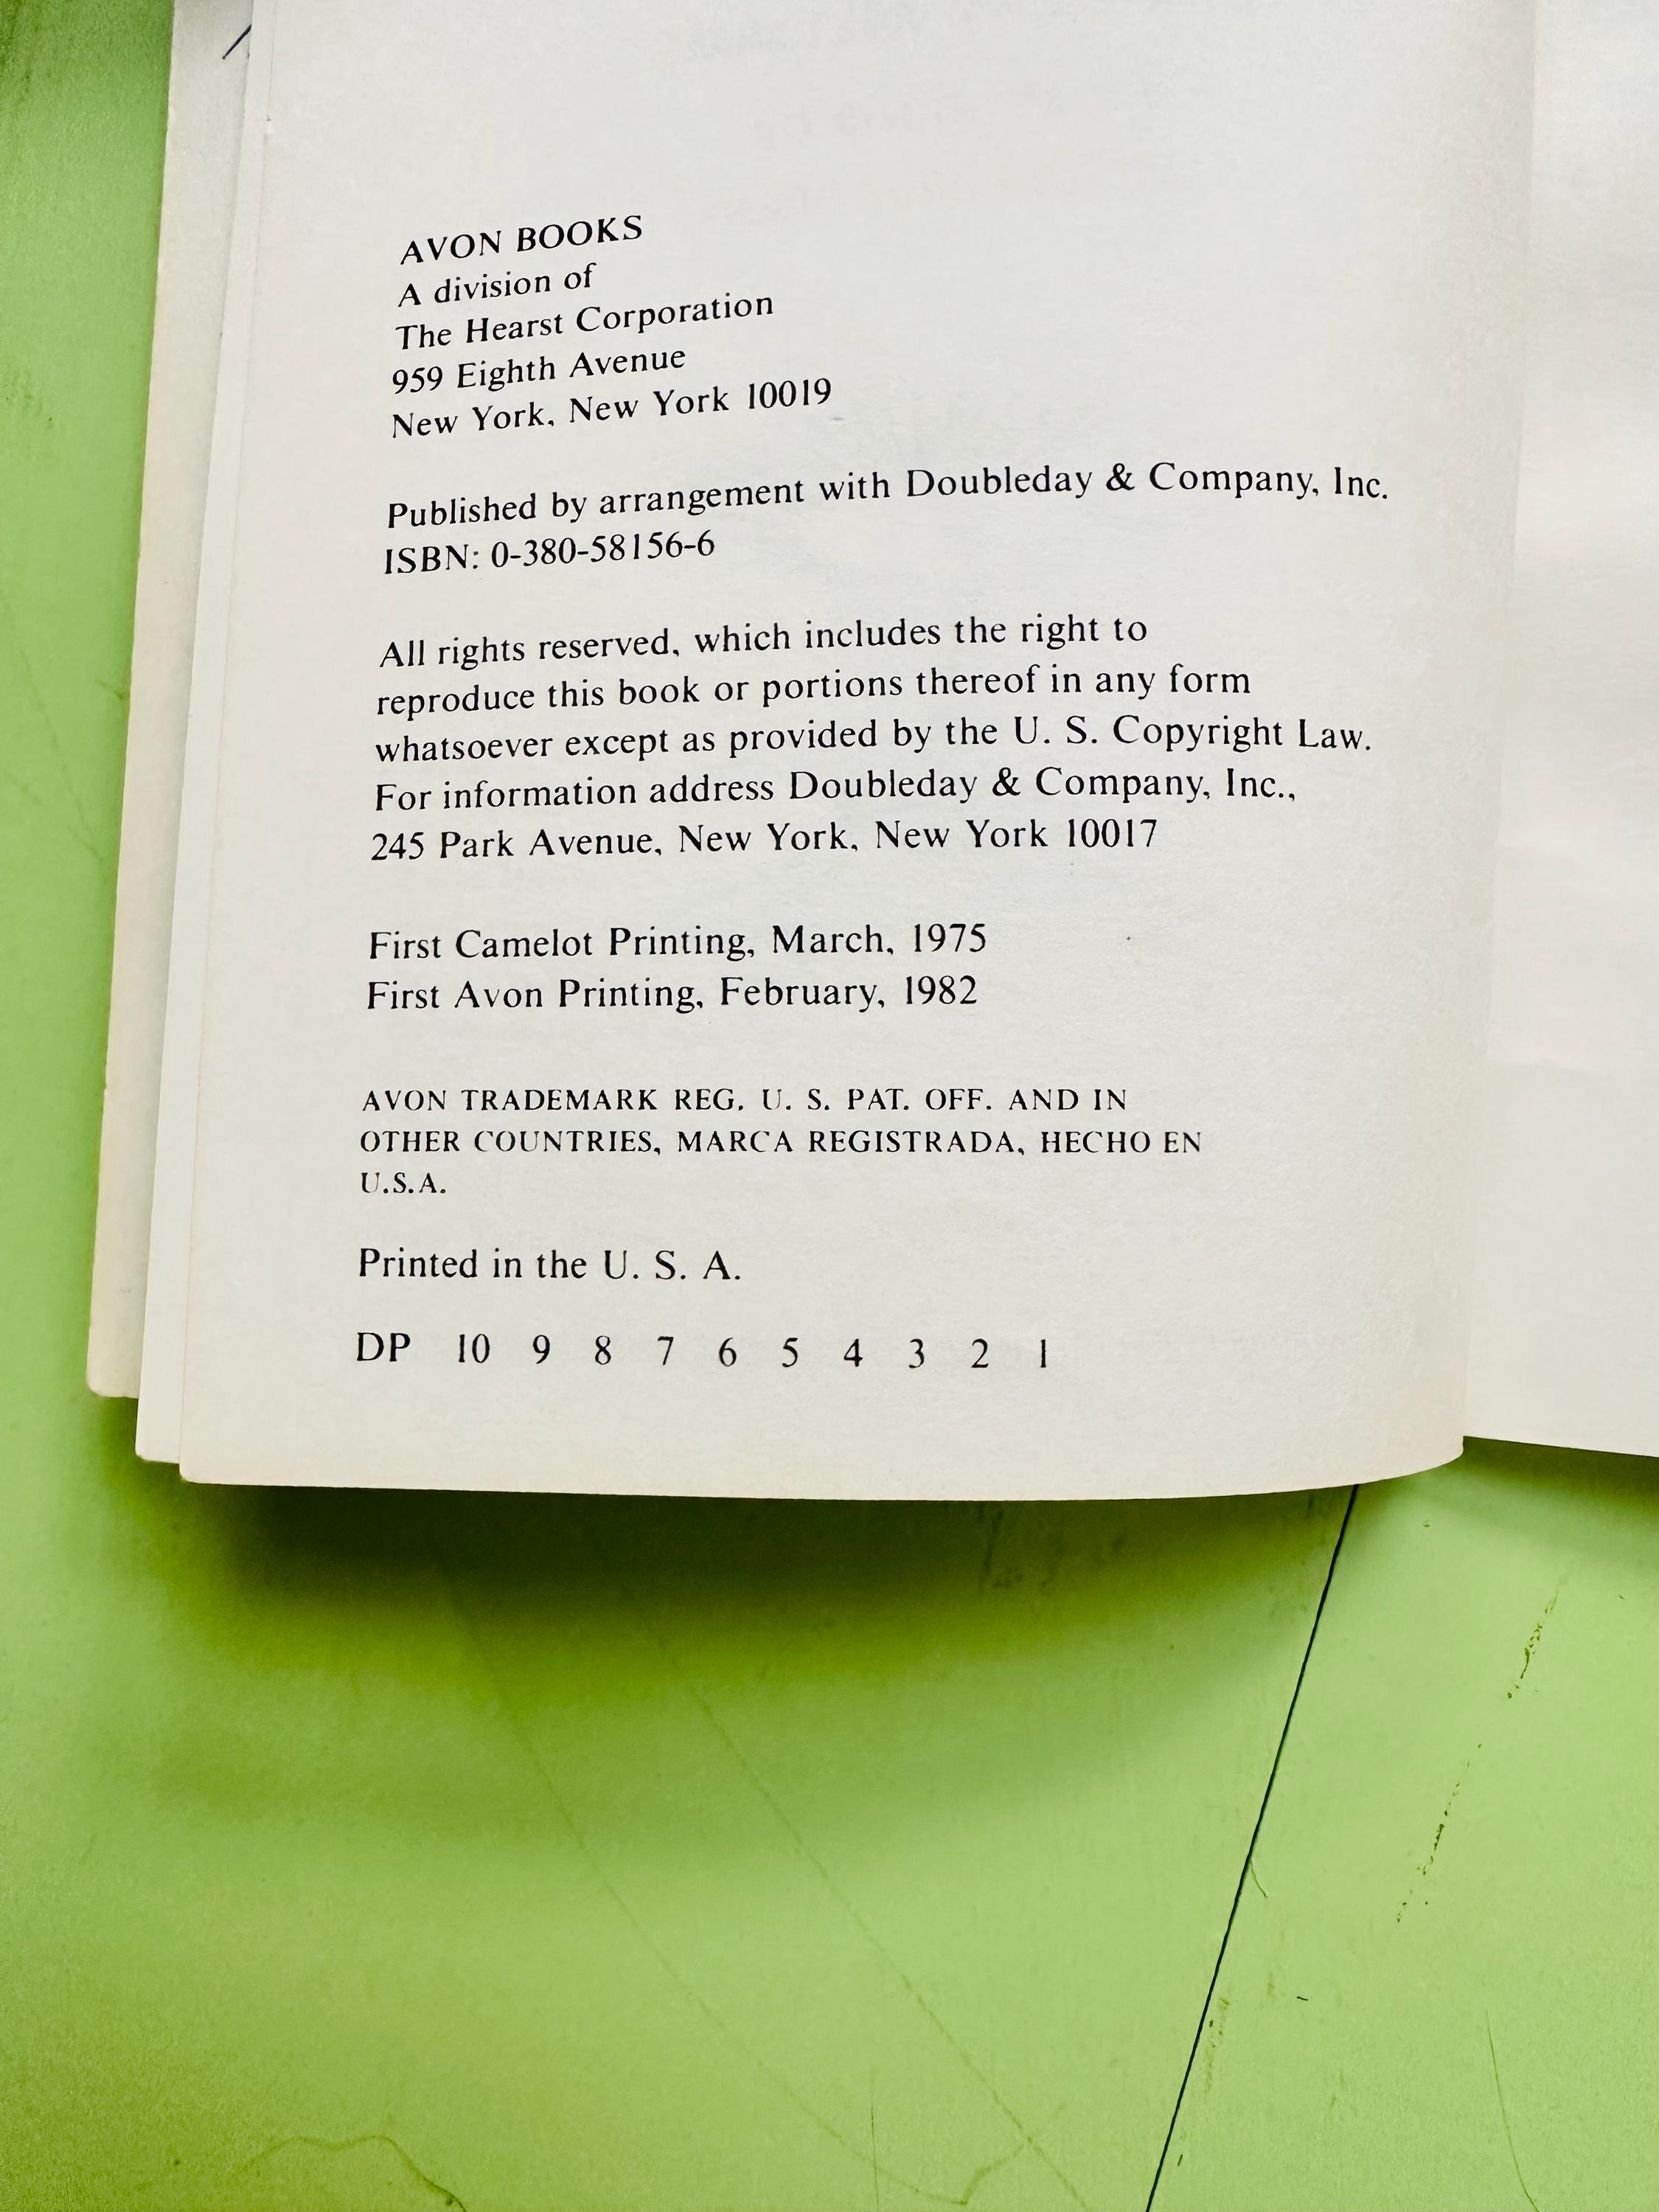 AVON BOOKS
A division of
The Hearst Corporation
959 Eighth Avenue
New York, New York 10019
Published by arrangement with Doubleday & Company, Inc.
ISBN: 0-380-58156-6
All rights reserved, which includes the right to
reproduce this book or portions thereof in any form
whatsoever except as provided by the U. S. Copyright Law.
For information address Doubleday & Company, Inc.,
245 Park Avenue, New York, New York 10017
First Camelot Printing, March, 1975
First Avon Printing, February, 1982
AVON TRADEMARK REG. U. S. PAT. OFF. AND IN
OTHER COUNTRIES, MARCA REGISTRADA, HECHO EN
U.S.A.
Printed in the U. S. A.
DP 10 9 8 7 6 5 4 3 2 1